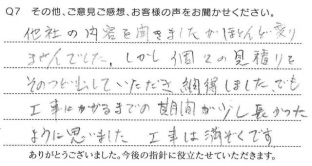 Q7 その他、ご意見ご感想、お客様の声をお聞かせください。
他社の内容を聞きましたがほとんど変り
ませんでした。しかし個々の見積りを
そのつど出していただき納得しました。でも
工事にかかるまでの期間が少し長かった
ように思いました 工事は満ぞくです
ありがとうございました。今後の指針に役立たせていただきます。